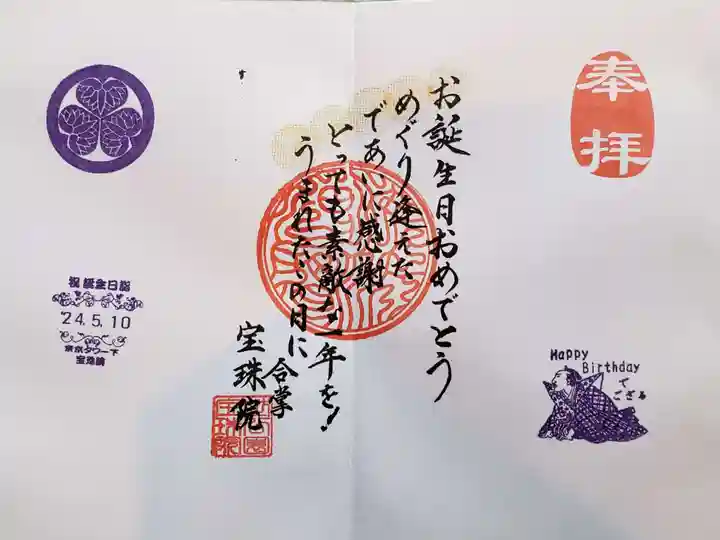 奉拝
お誕生日おめでとう
めぐり逢えた
であいに感謝
とっても素敵な一年を!
うまれたこの日に
合掌
宝珠院
祝誕生日詣
'24.5.10
東京タワー下
宝珠院
Happy
Birthday
で
ござる